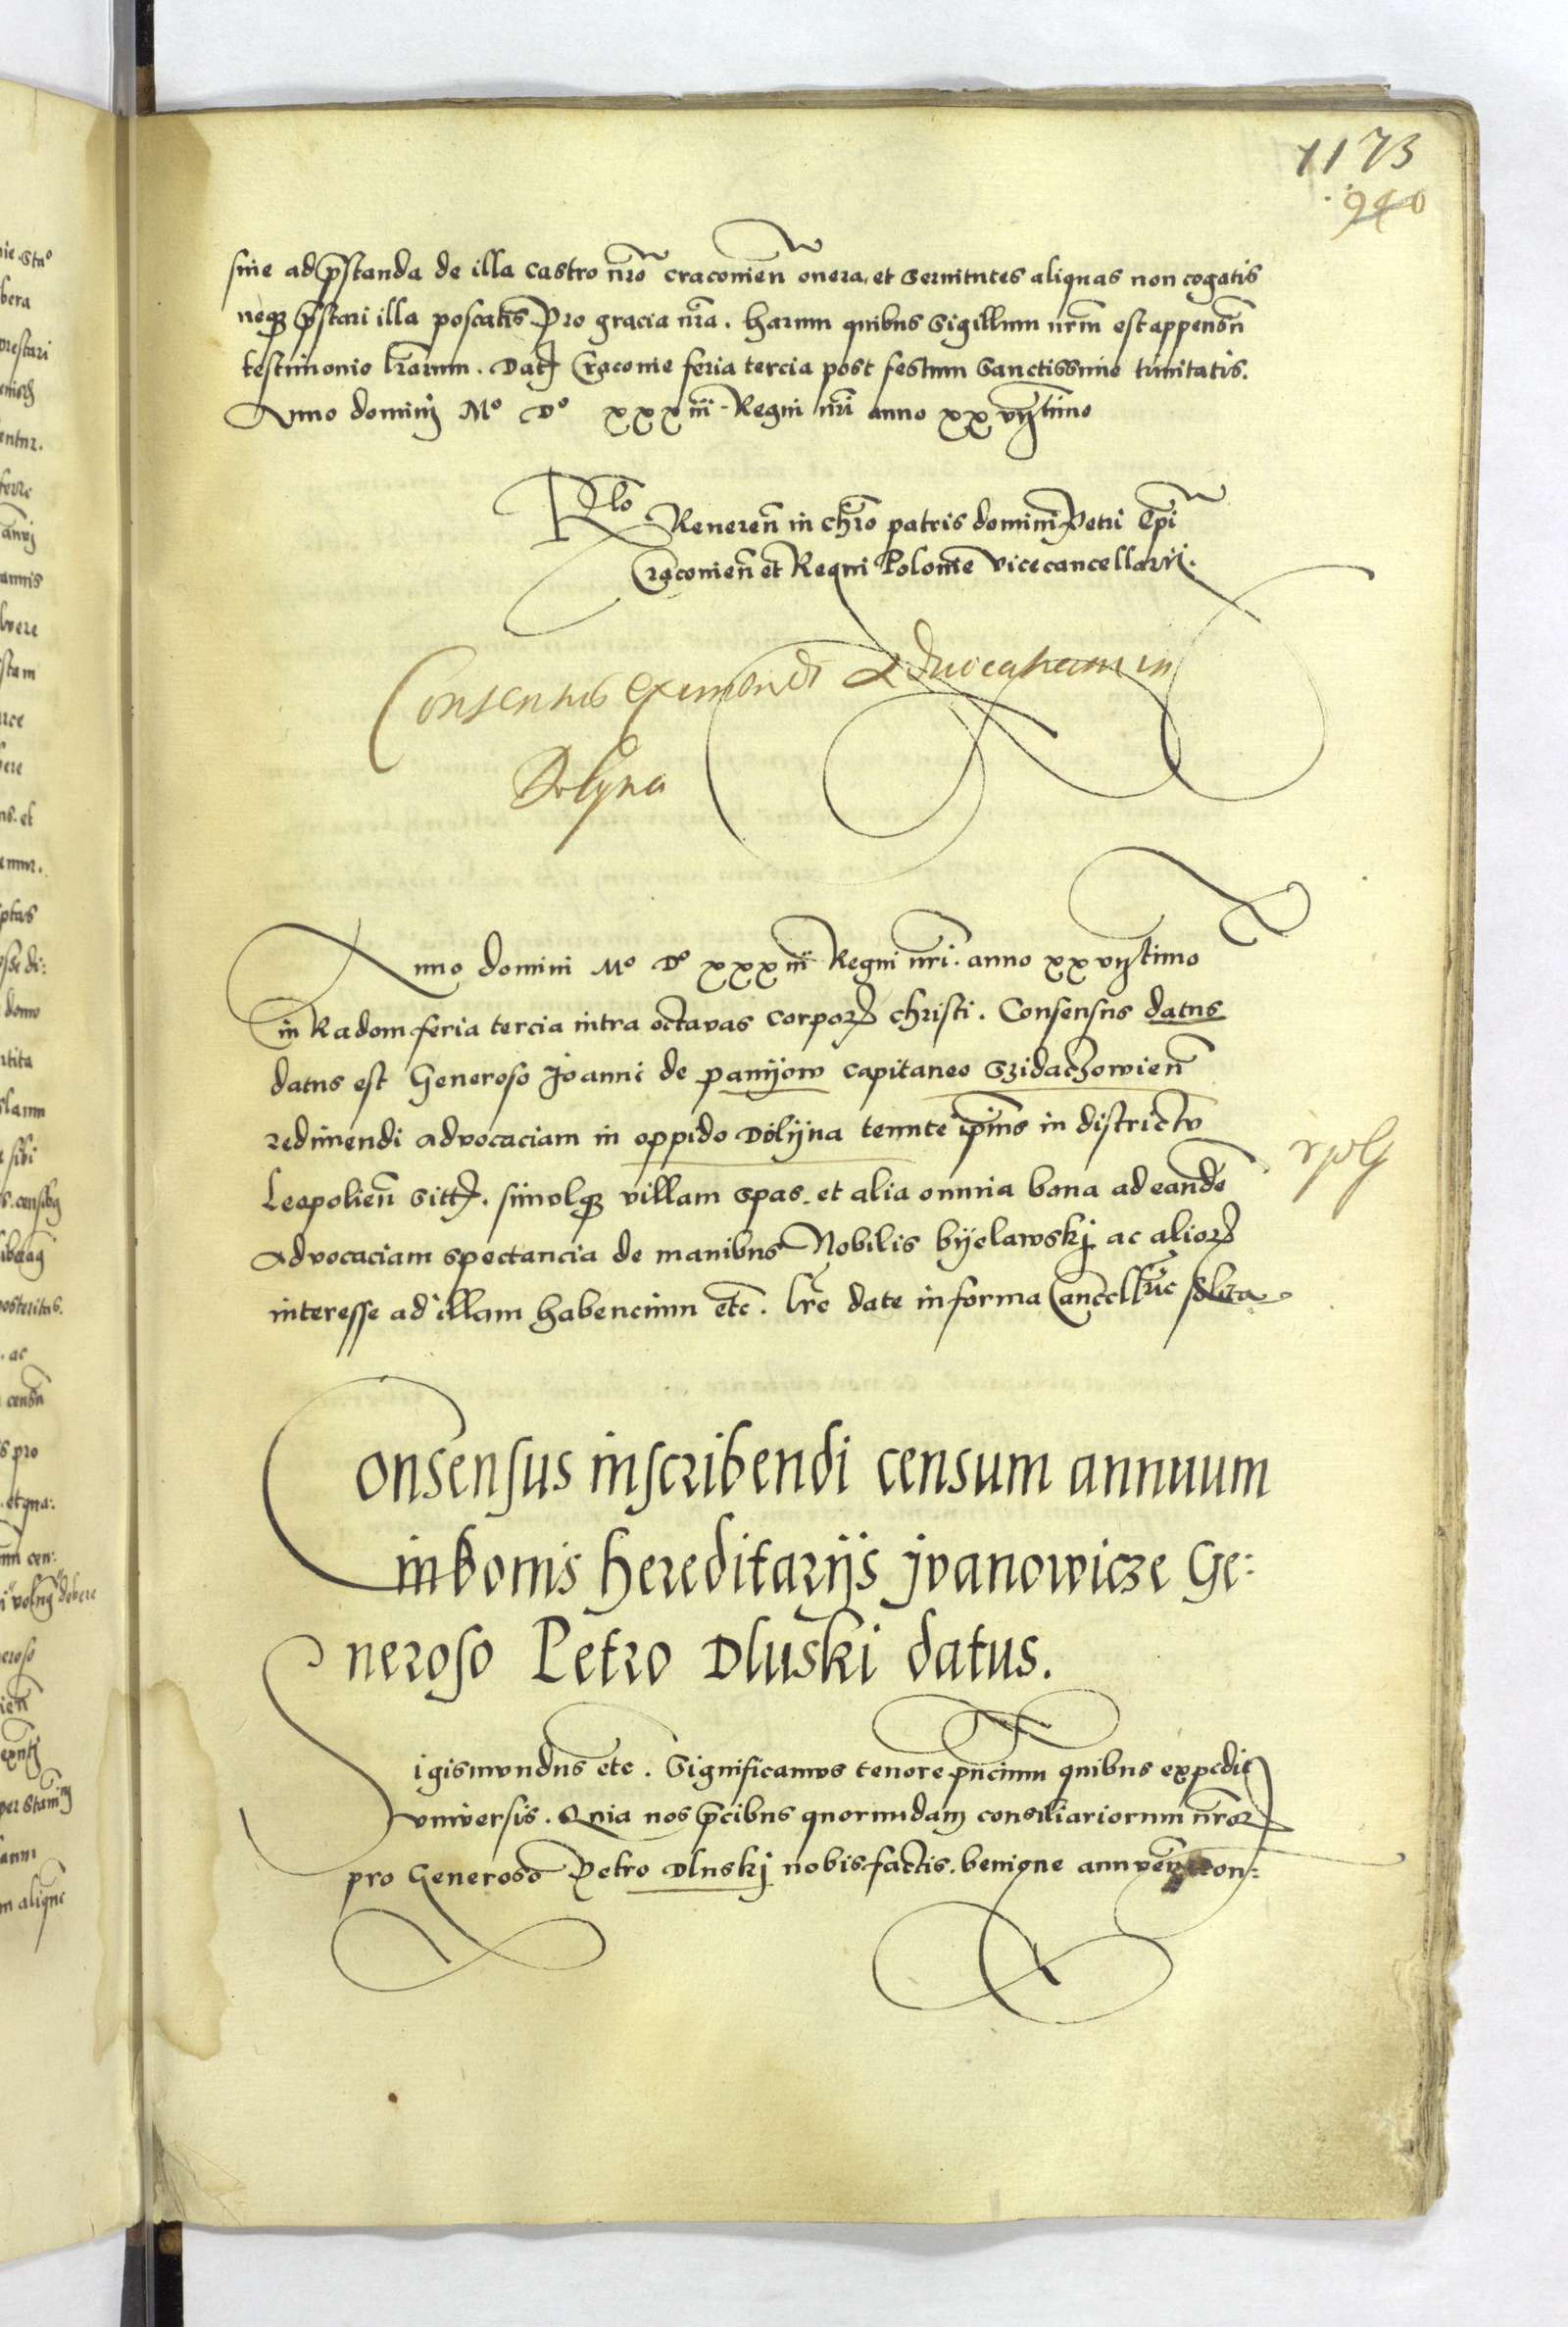 1173
940
sive ad p̄standa de illa castro nr̄o cracovien̄ onera, et servitutes aliquas non cogatis
neqȝ p̄stari illa poscatis pro gracia nr̄a. harum quibus Sigillum nr̄m est appensū
testimonio lr̄arum. Datȝ Cracovie feria tercia post festum Sanctissime trinitatis.
Anno dominj Mº Dº xxxiii Regni nr̄i anno xxvijtimo
Rlō Reveren̄ in chr̄o patris dominj Petri Ep̄i
Cracovien̄ et Regni Polonie Vicecancellarii.
Consensus eximendi Advocatiam in
Dolyna
Anno domini Mº Dº xxxiii Regni nr̄i. anno xxvijtimo
in Radom feria tercia intra octavas corporȝ christi. Consensus datus
datus est Generoso Joanni de panijow capitaneo Szidaczowien̄
redimendi advocaciam in oppido Dolijna tenute ip̄ius in districtu
Leopolien̄ sittȝ. simulqȝ villam Spas. et alia omnia bona ad eandē
Advocaciam spectancia de manibus Nobilis bijelawskj ac aliorȝ
interesse ad illam habencium etc̄. lr̄e date in forma Cancell̄rie solita
Consensus inscribendi censum annuum
in bonis hereditarijs jvanowicze Ge:
neroso Petro Dluski datus.
Sigismundus etc. Significamus tenore pn̄cium quibus expedit
universis. Quia nos p̄cibus quorundam consiliariorum nr̄orȝ
pro Generoso Petro Dluskj nobis factis. benigne annuen̄ con: